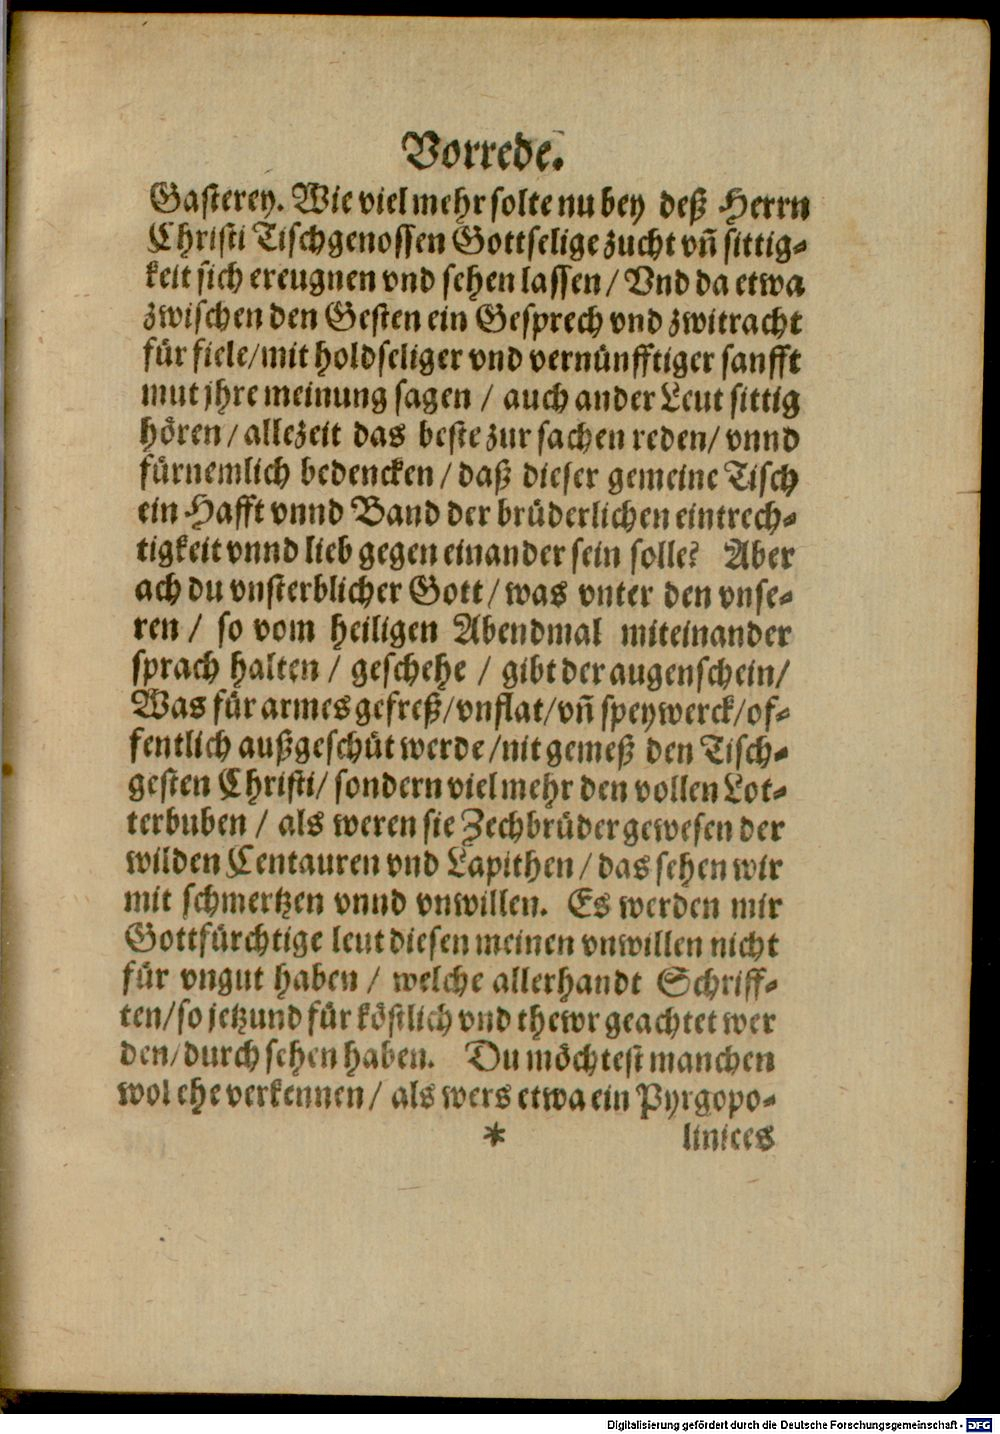 Vorrede.
Gasterey. Wie viel mehr solte nu bey deß Herrn
Christi Tischgenossen Gottselige zucht vñ sittig-
keit sich ereugnen vnd sehen lassen / Vnd da etwa
zwischen den Gesten ein Gesprech vnd zwitracht
für fiele/mit holdseliger vnd vernünfftiger sanfft
mut jhre meinung sagen / auch ander Leut sittig
hören / allezeit das beste zur sachen reden/ vnnd
fürnemlich bedencken / daß dieser gemeine Tisch
ein Hafft vnnd Band der brüderlichen eintrech-
tigkeit vnnd lieb gegen einander sein solle? Aber
ach du vnsterblicher Gott / was vnter den vnse-
ren / so vom heiligen Abendmal miteinander
sprach halten / geschehe / gibt der augenschein/
Was für armes gefreß/vnflat/vñ speywerck/of-
fentlich außgeschüt werde /nit gemeß den Tisch-
gesten Christi/ sondern viel mehr den vollen Lot-
terbuben / als weren sie Zechbrüder gewesen der
wilden Centauren vnd Lapithen / das sehen wir
mit schmertzen vnnd vnwillen. Es werden mir
Gottfürchtige leut diesen meinen vnwillen nicht
für vngut haben / welche allerhandt Schriff-
ten/so jetzund für köstlich vnd thewr geachtet wer
den/durch sehen haben. Du möchtest manchen
wol ehe verkennen / als wers etwa ein Pyrgopo-
* linices
Digitalisierung gefördert durch die Deutsche Forschungsgemeinschaft - DFG